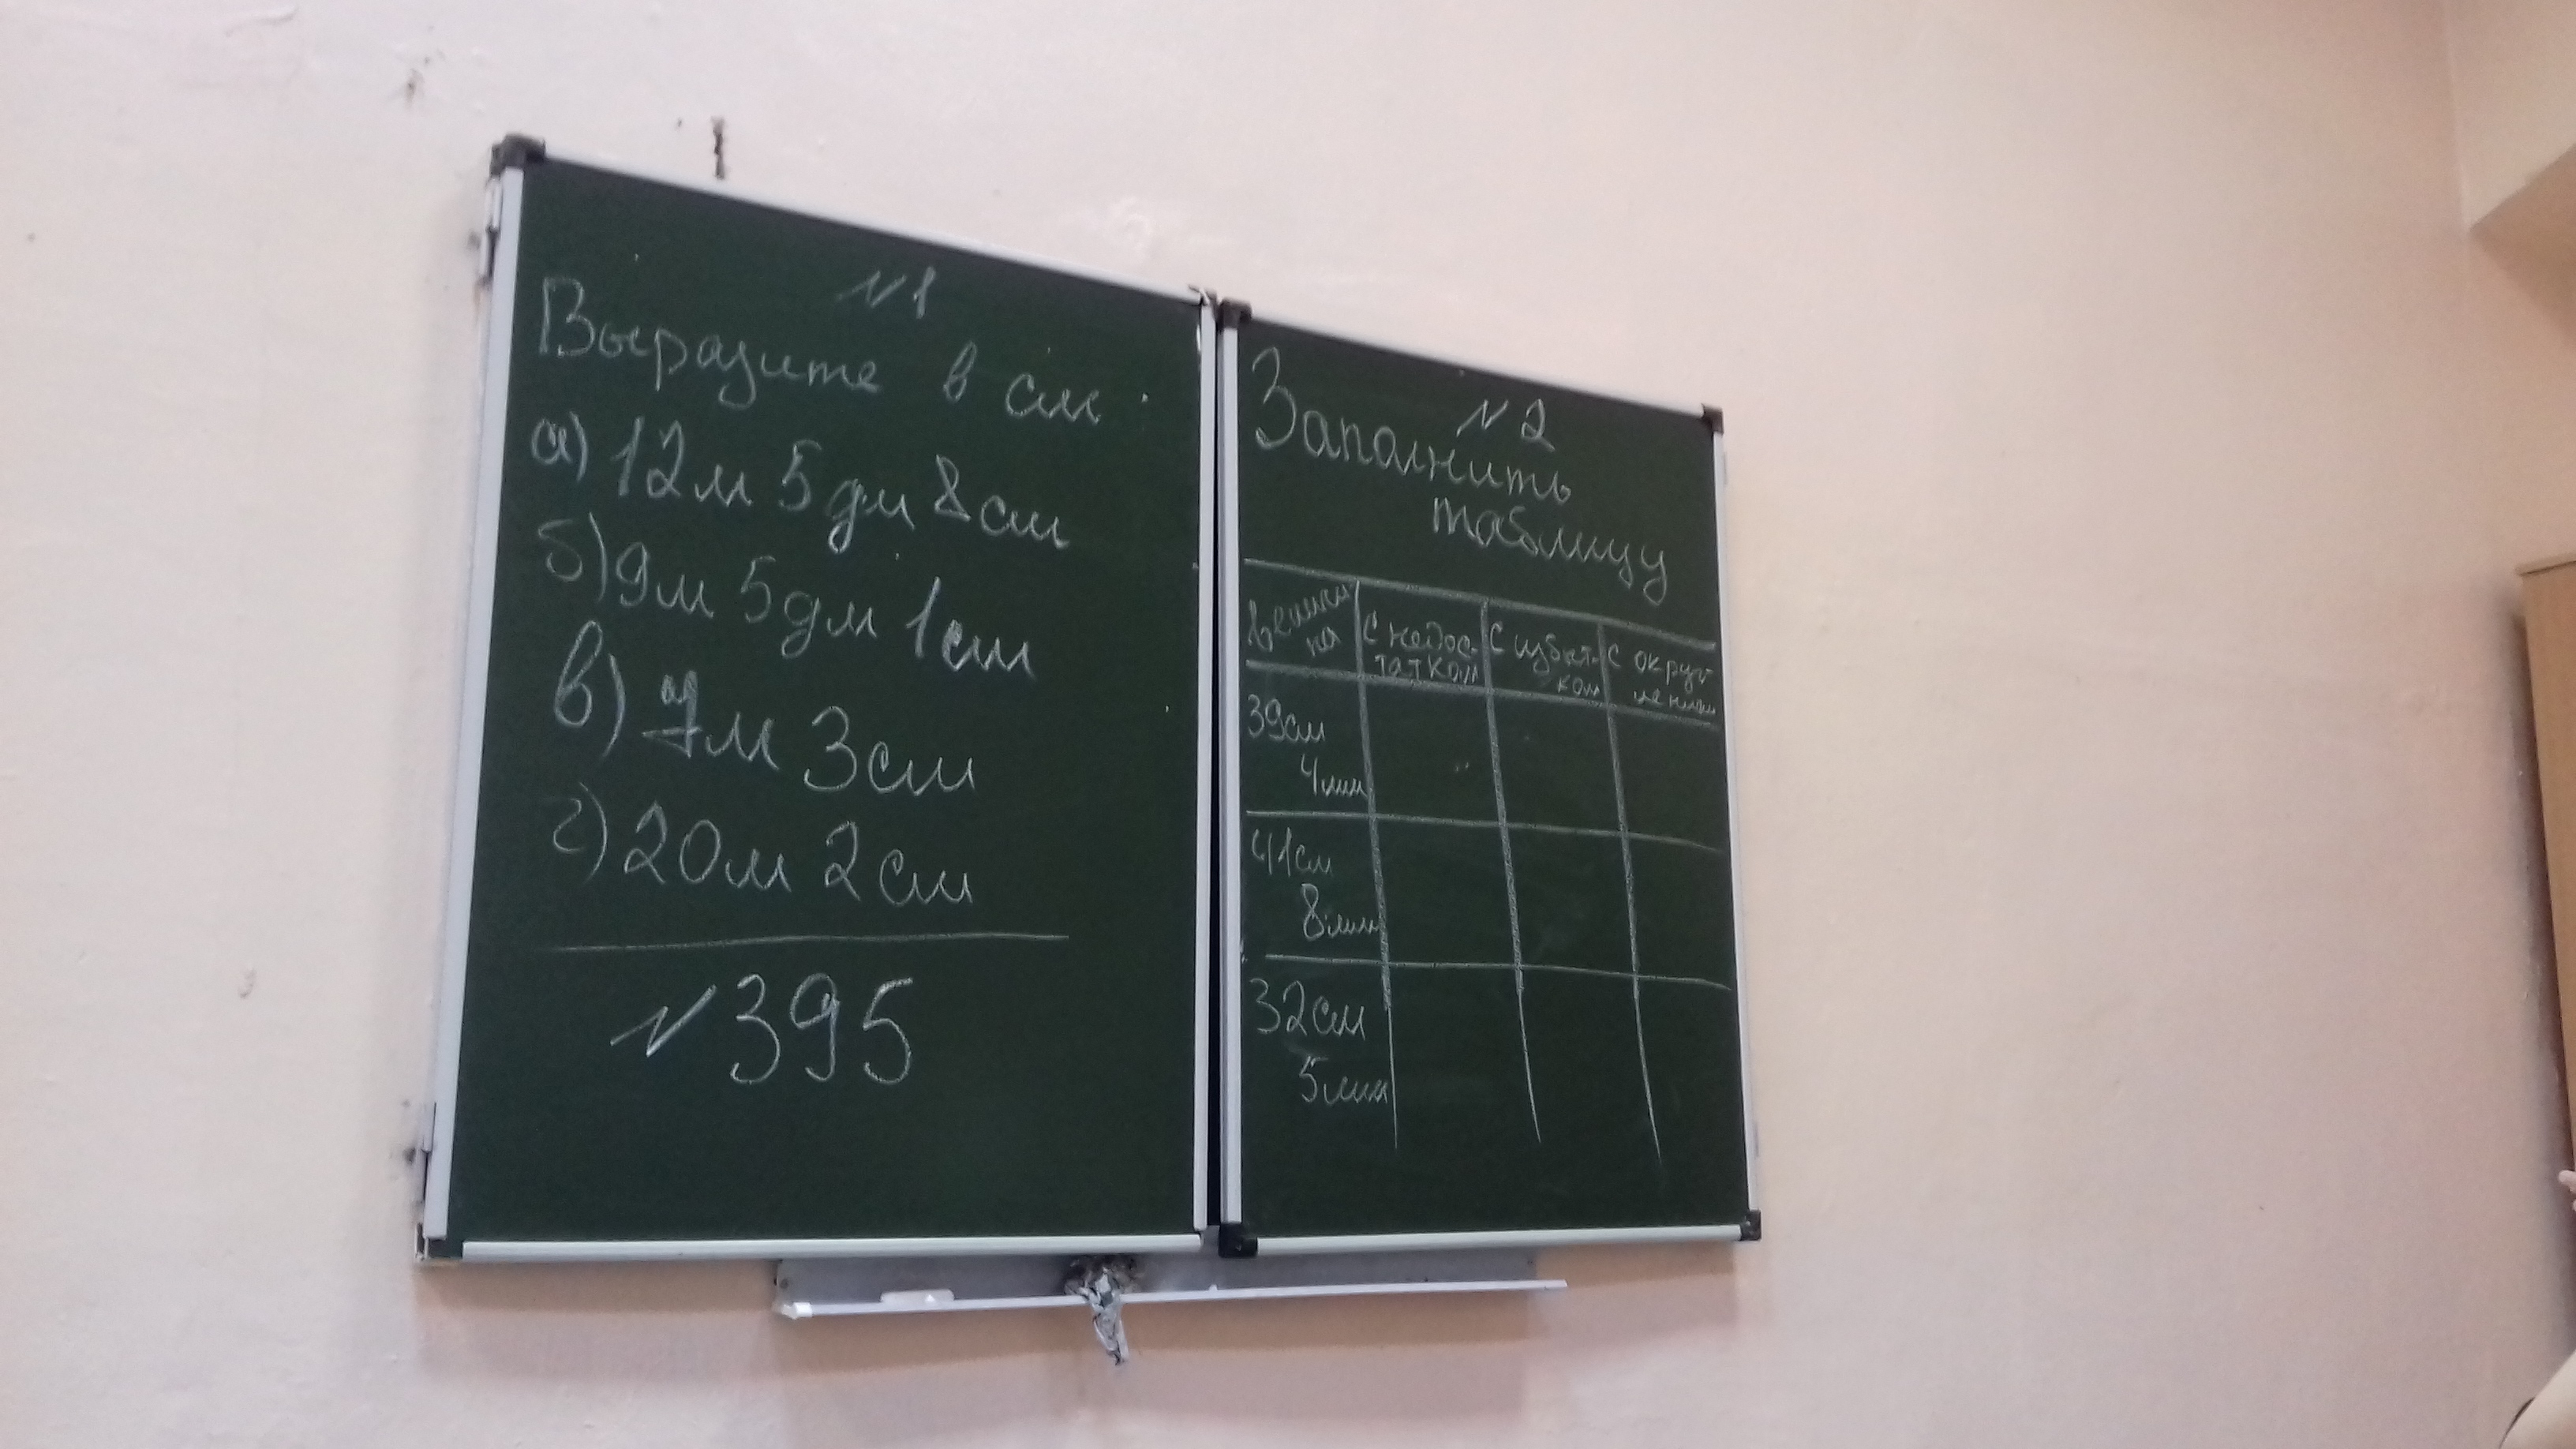 №1
Выразите в см
а) 12м 5дм 8см
б) 9м 5дм 1см
в) 7м 3см
г) 20м 2см
№395
№2
Заполнить
таблицу
величи
на
с недос-
татком
с избыт-
ком
с округ-
лением
39см
4мм
41см
8мм
32см
5мм